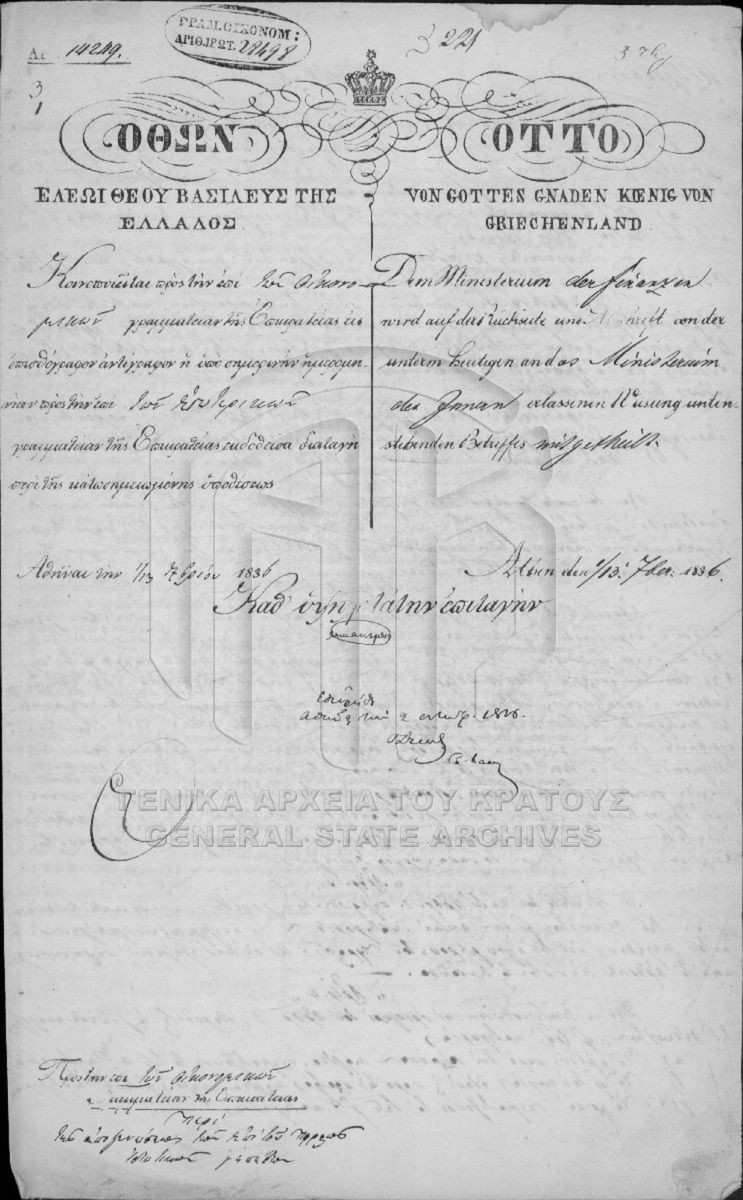 Αρ. 14249.
ΓΡΑΜ. ΟΙΚΟΝΟΜ:
ΑΡΙΘ. ΠΡΩΤ. 28498
221
3
1
ΟΘΩΝ
ΕΛΕΩΙ ΘΕΟΥ ΒΑΣΙΛΕΥΣ ΤΗΣ
ΕΛΛΑΔΟΣ
Κοινοποιεῖται πρὸς τὴν ἐπὶ τῶν Οἰκονο-
μικῶν γραμματείαν τῆς Ἐπικρατείας εἰς
ὀπισθόγραφον ἀντίγραφον ἡ ὑπὸ σημερινὴν ἡμερομη-
νίαν πρὸς τὴν ἐπὶ τῶν Ἐσωτερικῶν
γραμματείαν τῆς Ἐπικρατείας ἐκδοθεῖσα διαταγὴ
περὶ τῆς κάτω σημειωμένης ὑποθέσεως
Ἀθῆναι τὴν 1/13 7βρίου 1836
OTTO
VON GOTTES GNADEN KŒNIG VON
GRIECHENLAND
Dem Ministerium der Finanzen
wird auf der Rückseite eine Abschrift von der
unterm Heutigen an das Ministerium
des Innern erlassenen Weisung unten-
stehenden Betreffes mitgetheilt.
Athen den 1/13. 7ber. 1836.
Καθ' ὑψηλοτάτην ἐπιταγὴν
1836.
ΓΕΝΙΚΑ ΑΡΧΕΙΑ ΤΟΥ ΚΡΑΤΟΥΣ
GENERAL STATE ARCHIVES
Πρὸς τὴν ἐπὶ τῶν Οἰκονομικῶν
Γραμματείαν τῆς Ἐπικρατείας
περὶ